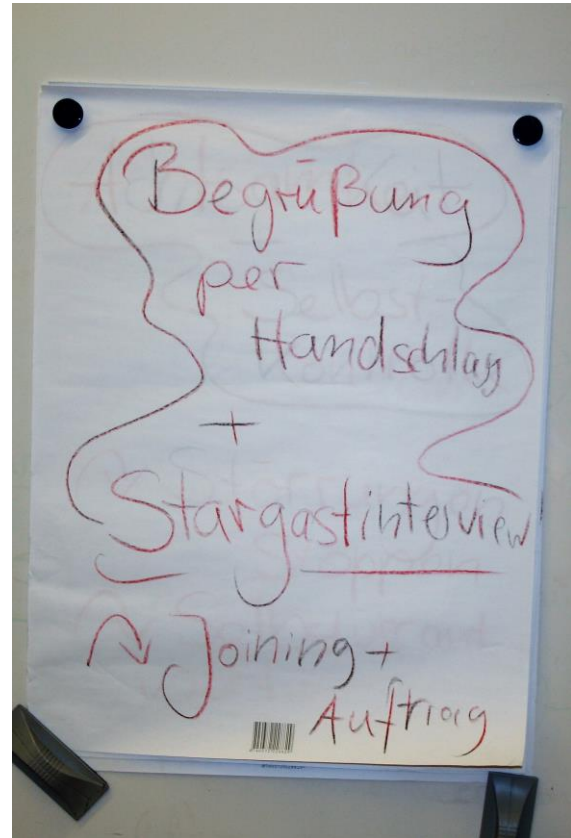 Begrüßung
per
Handschlag
+
Stargastinterview
Joining +
Auftrag